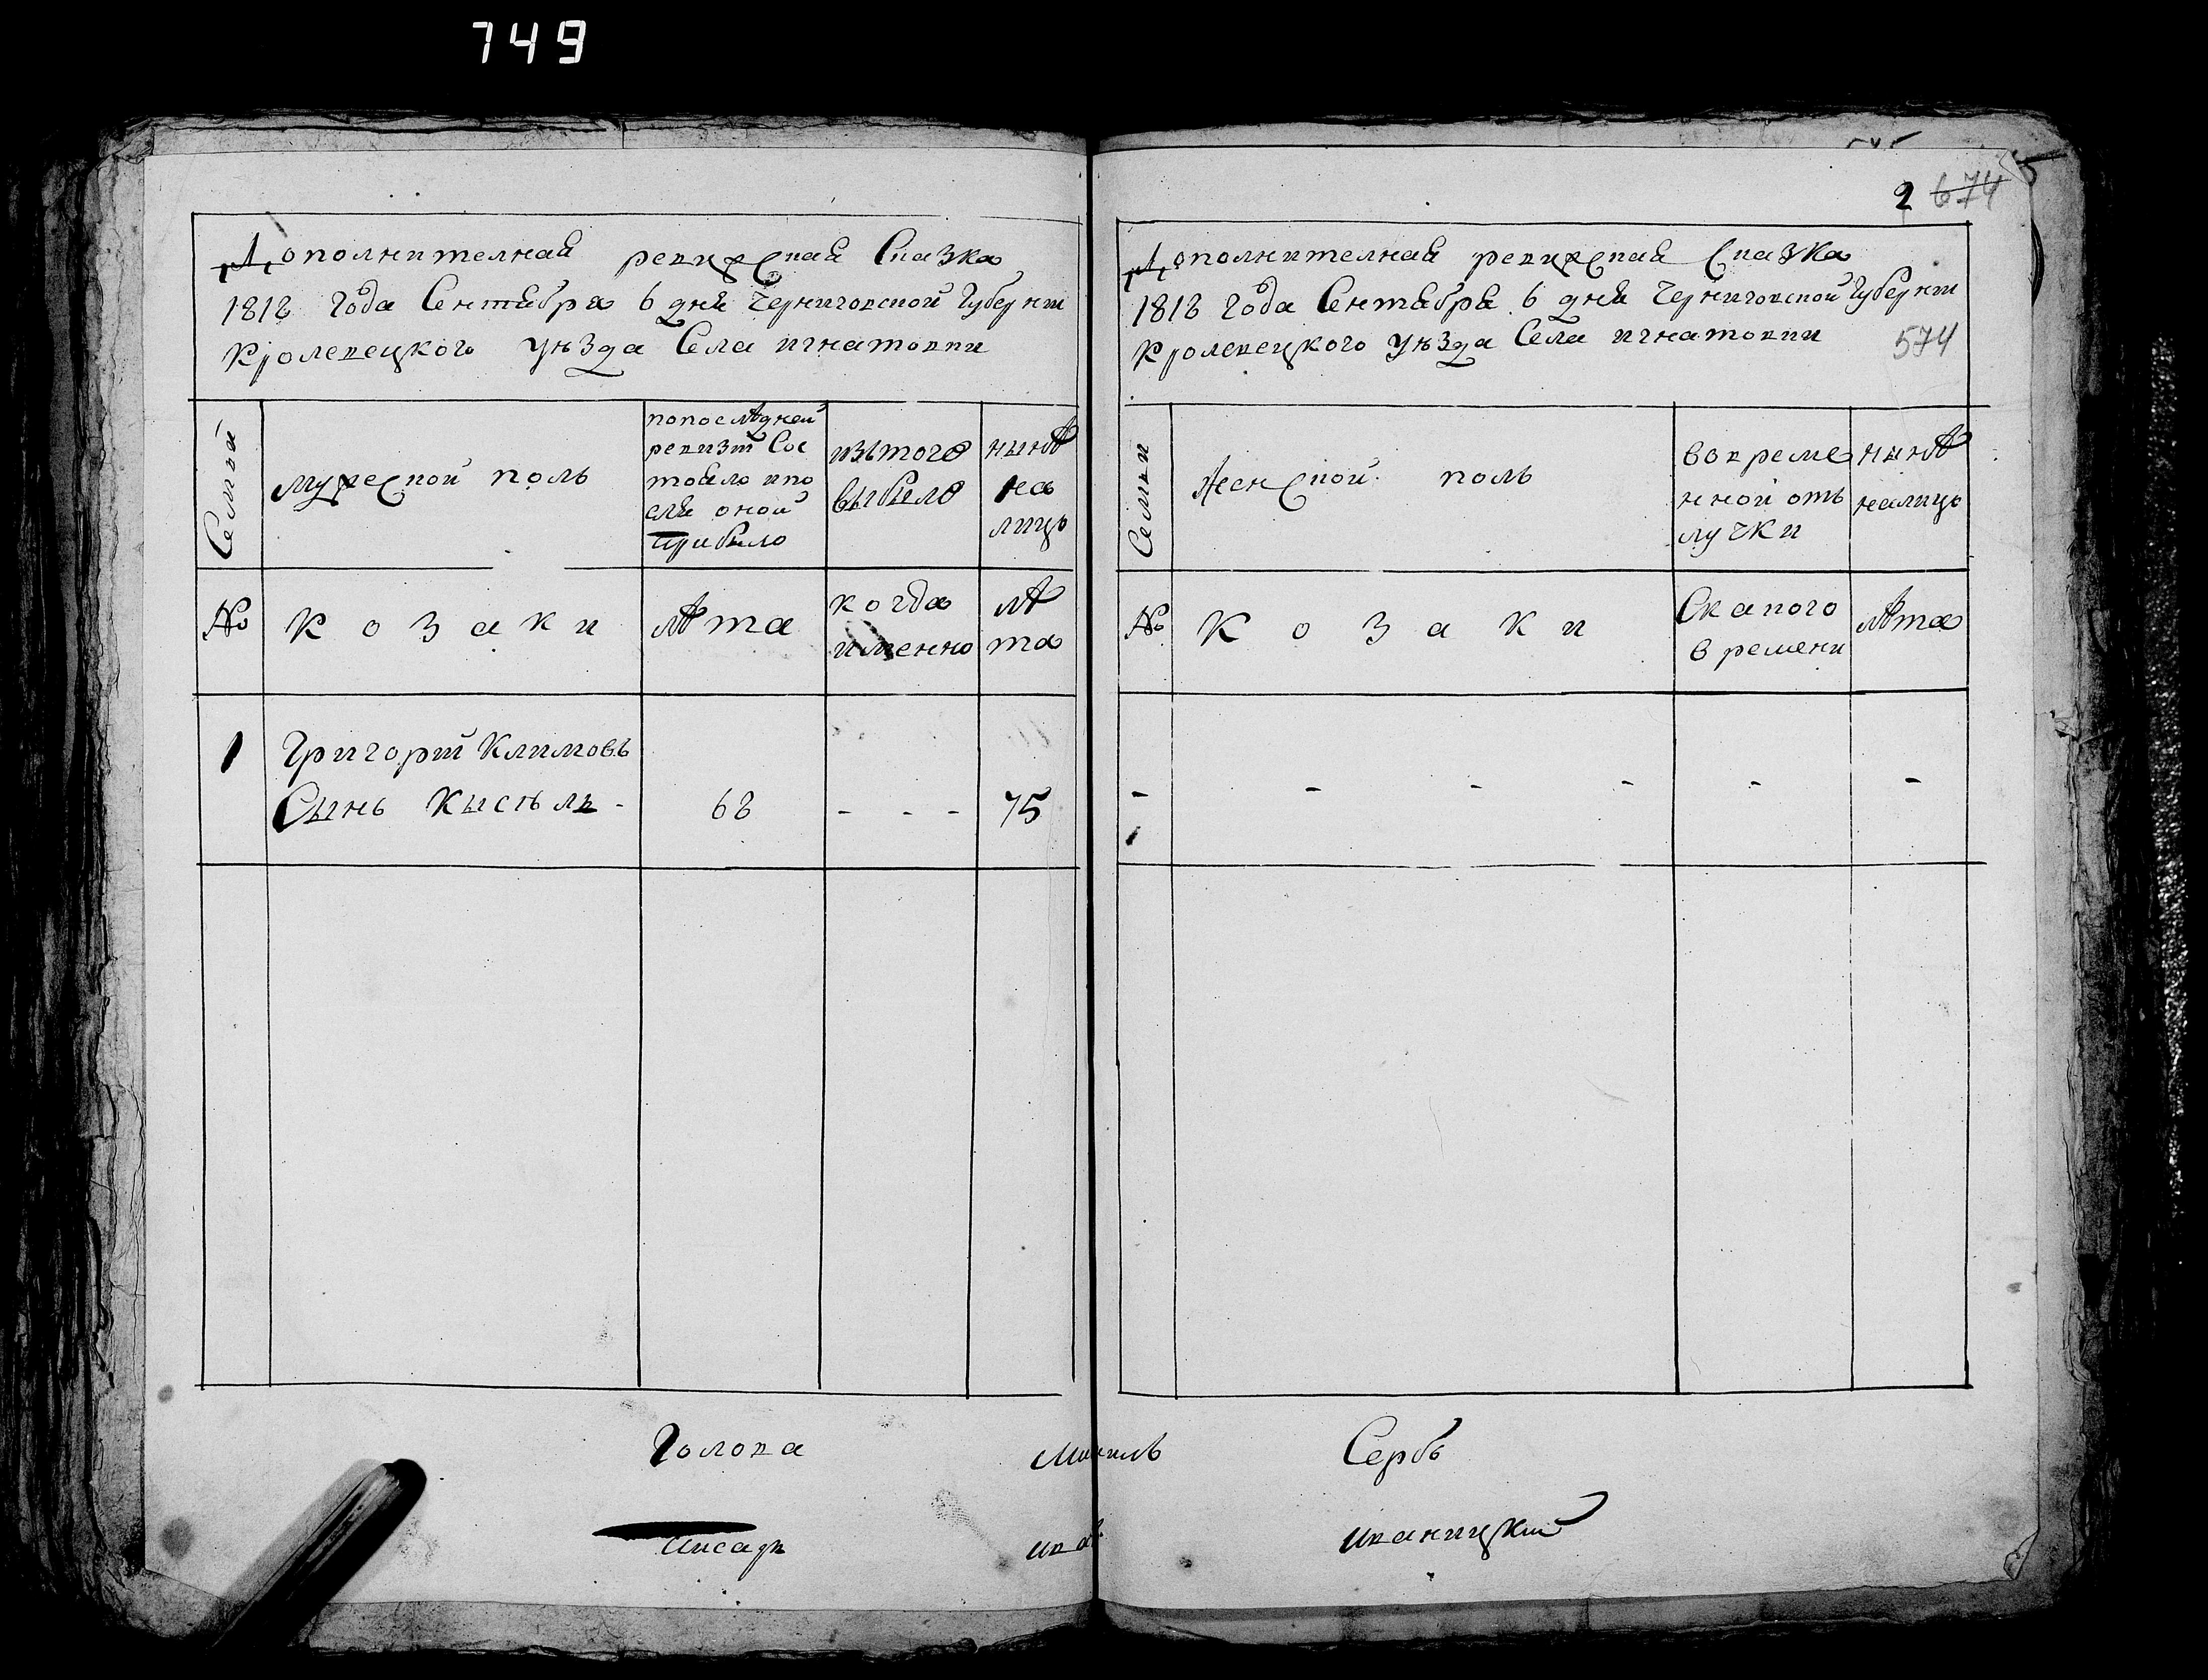 749
Дополнителная ревижская Сказка
1818 года Сентября 6 дня Черниговской Губернии
Кролевецкого уѣзда Села игнатовки
Семьи
мужеской полъ
попослѣдней
ревизии Сос
тояло ипо
слѣ оной
прибыло
изътого
выбыло
нынѣ
на
лицо
№
козаки
лѣта
когда
именно
лѣ
та
1
Григорий Климовъ
Сынъ Кысѣль -
68
- - -
75
2 674
Дополнителная ревижская Сказка
1818 года Сентября 6 дня Черниговской Губернии
Кролевецкого уѣзда Села игнатовки
574
Семьи
женской полъ
вовреме
нной отъ
лучки
нынѣ
налицо
№
козаки
Скакого
времени
лѣта
- - - - - -
Голова Михаилъ Сербъ
Писарь Иваницкий